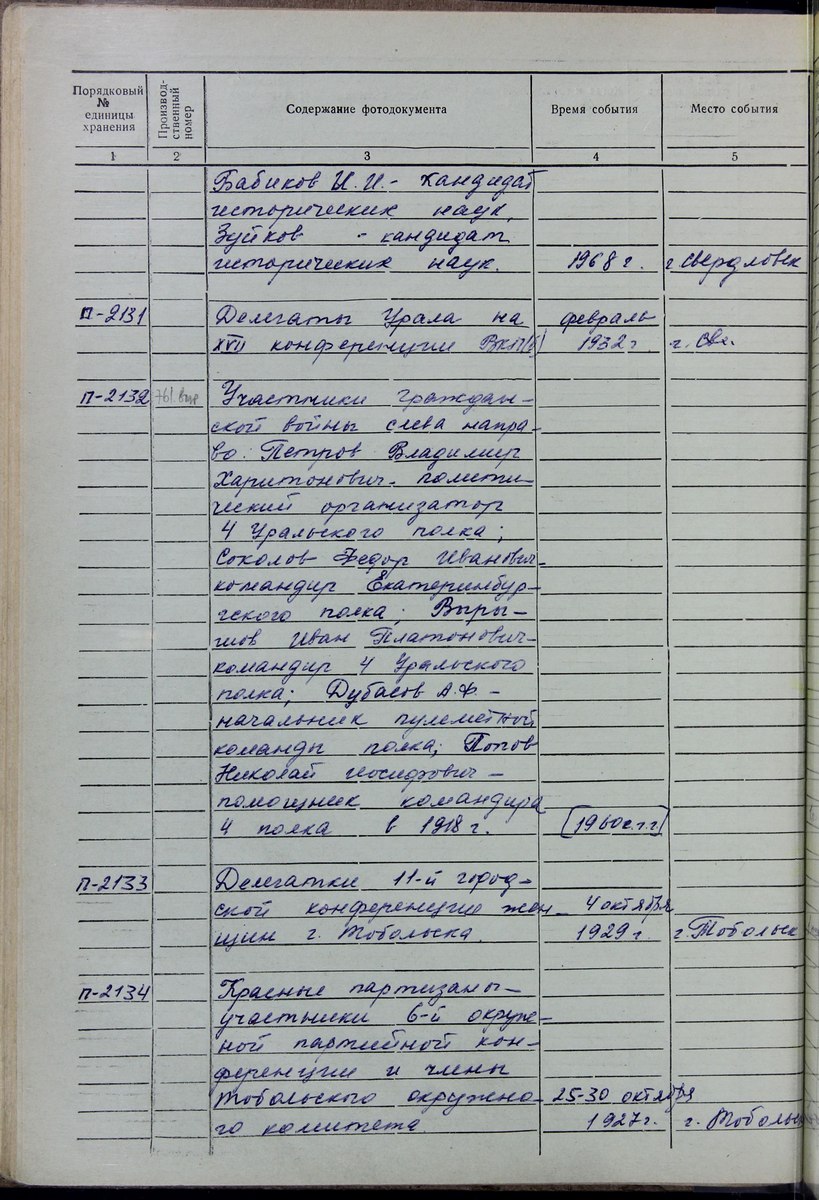 Порядковый № единицы хранения
Производ-ственный номер
Содержание фотодокумента
Время события
Место события
1 2 3 4 5
Бабиков И.И. - кандидат
исторических наук,
Зуйков - кандидат
исторических наук. 1968 г. г. Свердловск
П-2131 Делегаты Урала на февраль
XVII конференции ВКП(б) 1932 г. г. Све.
П-2132 Участники граждан-
ской войны слева напра-
во: Петров Владимир
Харитонович - полити-
ческий организатор
4 Уральского полка;
Соколов Федор Иванович -
командир Екатеринбур-
гского полка; Выры-
шов Иван Платонович -
командир 4 Уральского
полка; Дубасов А.Ф -
начальник пулеметной
команды полка; Попов
Николай Иосифович -
помощник командира
4 полка в 1918 г. [1960е г.г.]
П-2133 Делегатки 11-й город-
ской конференции жен- 4 октября
щин г. Тобольска. 1929 г. г. Тобольск
П-2134 Красные партизаны -
участники 6-й окруж-
ной партийной кон-
ференции и члены
Тобольского окружно- 25-30 октября
го комитета 1927 г. г. Тобольск